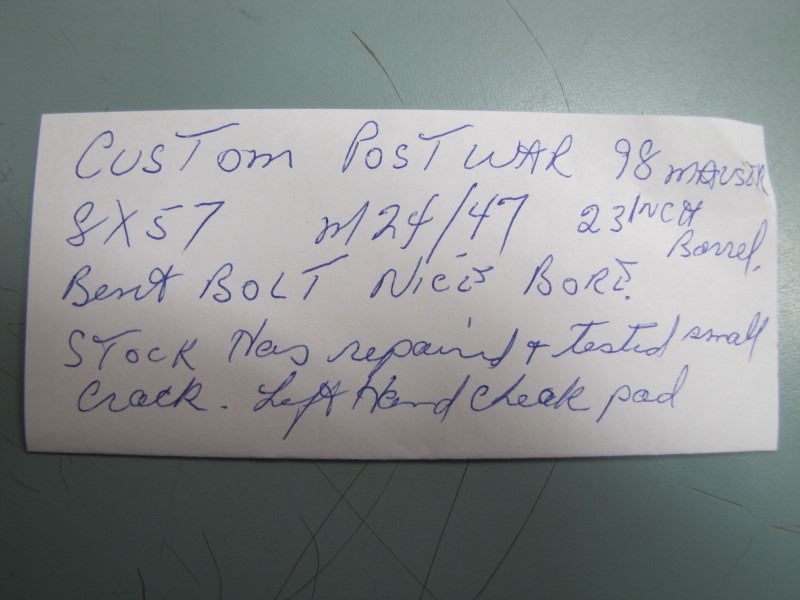 CUSTOM POST WAR 98 MAUSER
8X57 M24/47 23 INCH Barrel.
Bent BOLT NICE BORE.
STOCK Has repaired + tested small
crack. Left Hand cheek pad